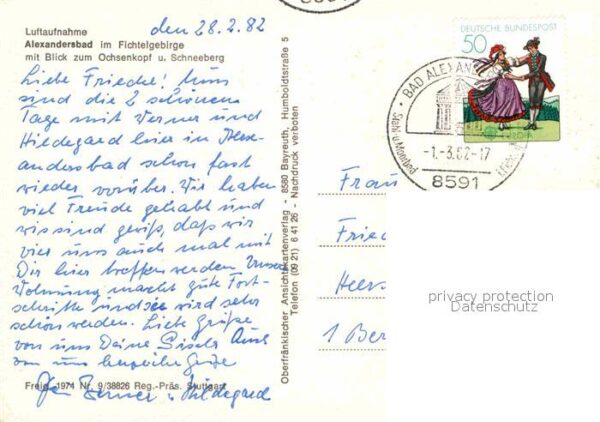 Luftaufnahme
Alexandersbad im Fichtelgebirge
mit Blick zum Ochsenkopf u. Schneeberg
den 28.2.82
Liebe Friedel! Nun
sind die 2 schönen
Tage mit Werner und
Hildegard hier in Alex-
andersbad schon fast
wieder vorüber. Wir haben
viel Freude gehabt und
wir sind gewiß, daß wir
vier uns auch mal mit
Dir hier treffen werden. Unsere
Wohnung macht gute Fort-
schritte und sie wird sehr
schön werden. Liebe Grüße
von uns Deine Gisela
von uns herzliche Grüße
Werner u. Hildegard
Freig. 1974 Nr. 9/38826 Reg.-Präs. Stuttgart
Oberfränkischer Ansichtskartenverlag - 8580 Bayreuth, Humboldtstraße 5
Telefon (09 21) 6 41 26 - Nachdruck verboten
DEUTSCHE BUNDESPOST
50
EUROPA
BAD ALEXAN
Stahl-u. Moorbad
-1.-3.82-17
8591
Frau
Fried
1 Ber
privacy protection
Datenschutz